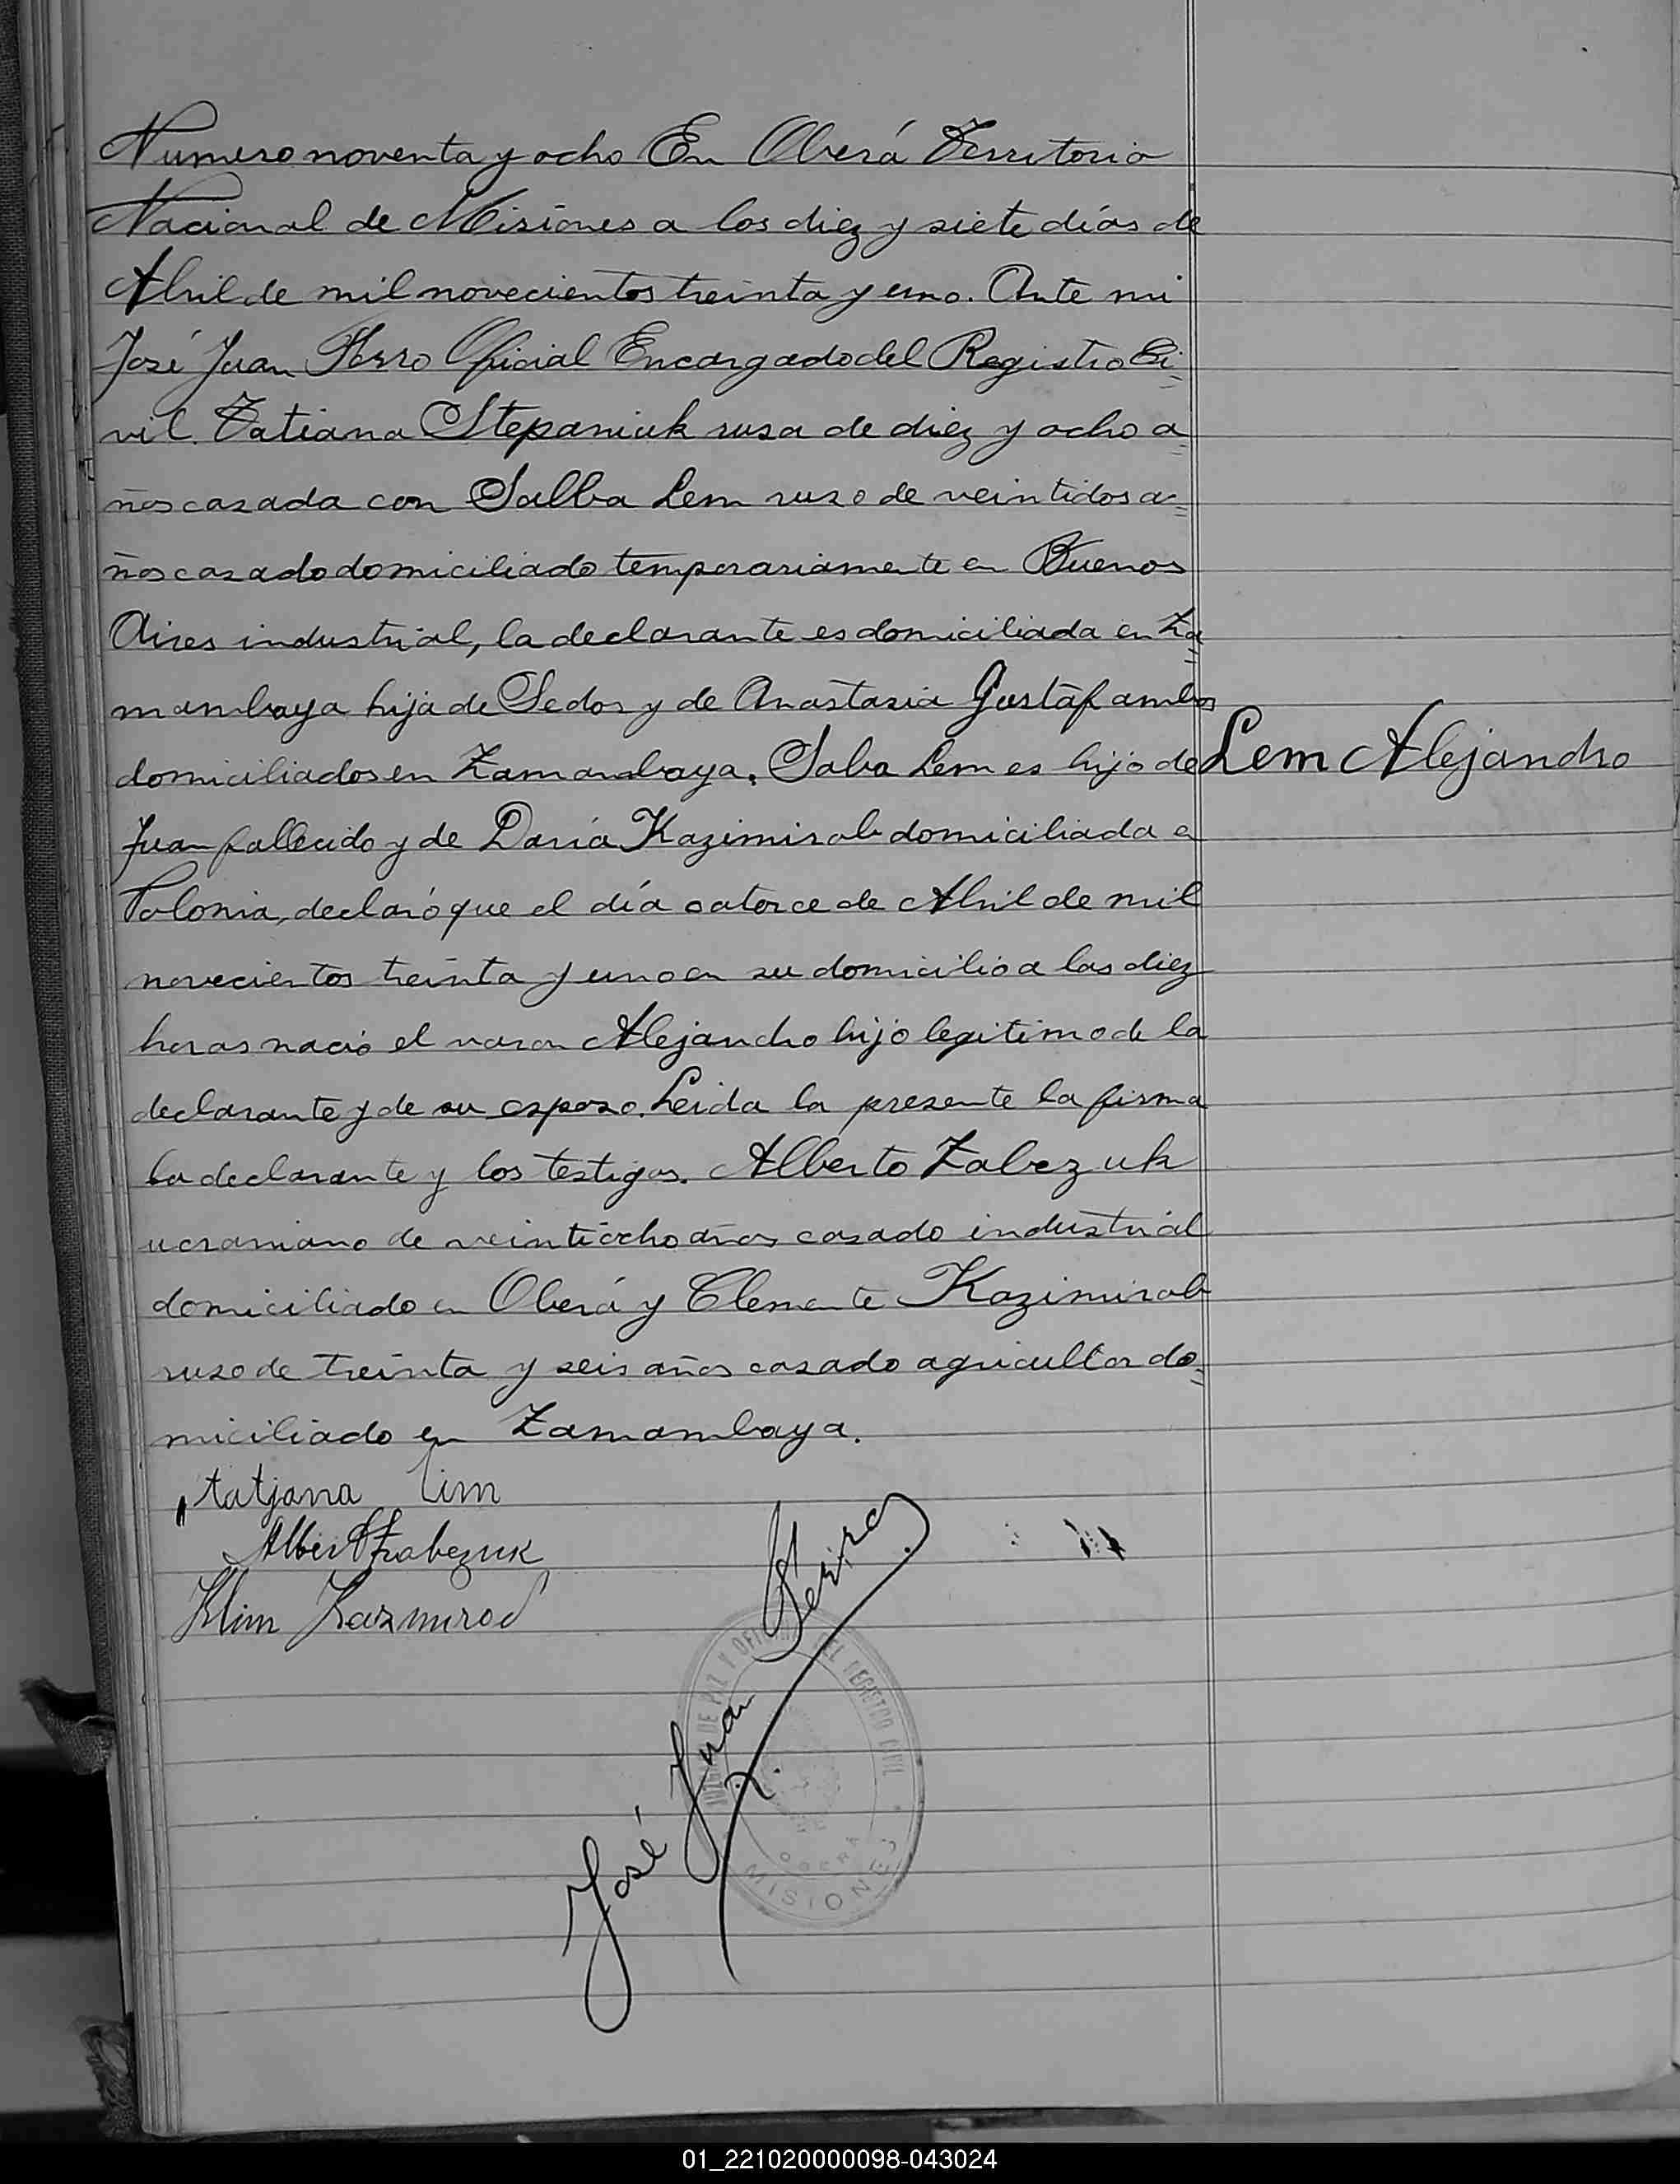 Numero noventa y ocho En Oberá Territorio
Nacional de Misiones a los diez y siete días de
Abril de mil novecientos treinta y uno. Ante mi
José Juan Oficial Encargado del Registro Ci=
vil. Tatiana Stepaniuk rusa de diez y ocho a=
ños casada con Salba Lem ruso de veintidos a=
ños casado domiciliado temporariamente en Buenos
Aires industrial, la declarante es domiciliada en Za=
mambaya hija de Fedor y de Anastasia Gustaf ambos
domiciliados en Zamambaya. Saba Lem es hijo de
Lem Alejandro
Juan fallecido y de Daría Kazimirob domiciliada e
Polonia, declaró que el día catorce de Abril de mil
novecientos treinta y uno en su domicilio a las diez
horas nació el varon Alejandro hijo legitimo de la
declarante y de su esposo. Leida la presente la firma
la declarante y los testigos. Alberto Zabezuk
ucraniano de veintiocho años casado industrial
domiciliado en Oberá y Clemente Kazimirob
ruso de treinta y seis años casado agricultor do=
miciliado en Zamambaya.
tatjana Lim
Albert Zabezuk
Klim Kazmirod
José Juan
JUZGADO DE PAZ Y OFICINA DEL REGISTRO CIVIL
OBERA
MISIONES
01_221020000098-043024